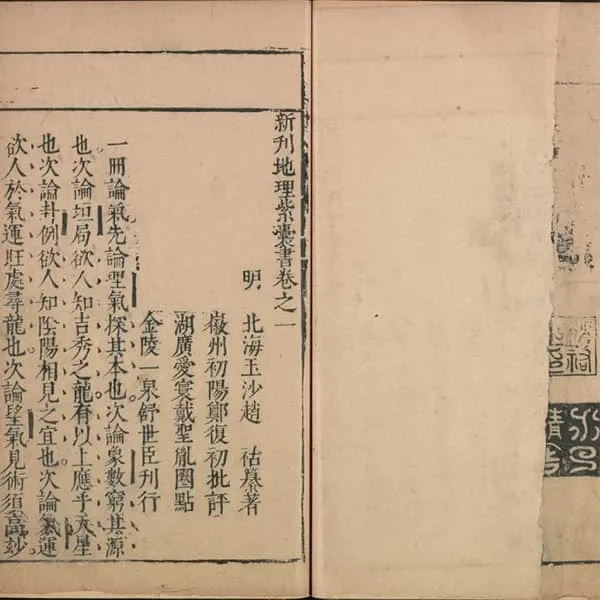 新刊地理紫囊書卷之一
明 北海玉沙趙 祜纂著
徽州初陽鄭復初批評
湖廣愛寰戴聖胤圈點
金陵一泉舒世臣刊行
一冊論氣先論理氣探其本也次論象數窮其源
也次論垣局欲人知吉秀之龍有以上應乎天星
也次論卦例欲人知陰陽相見之宜也次論氣運
欲人於氣運旺處尋龍也次論望氣見術須高玅